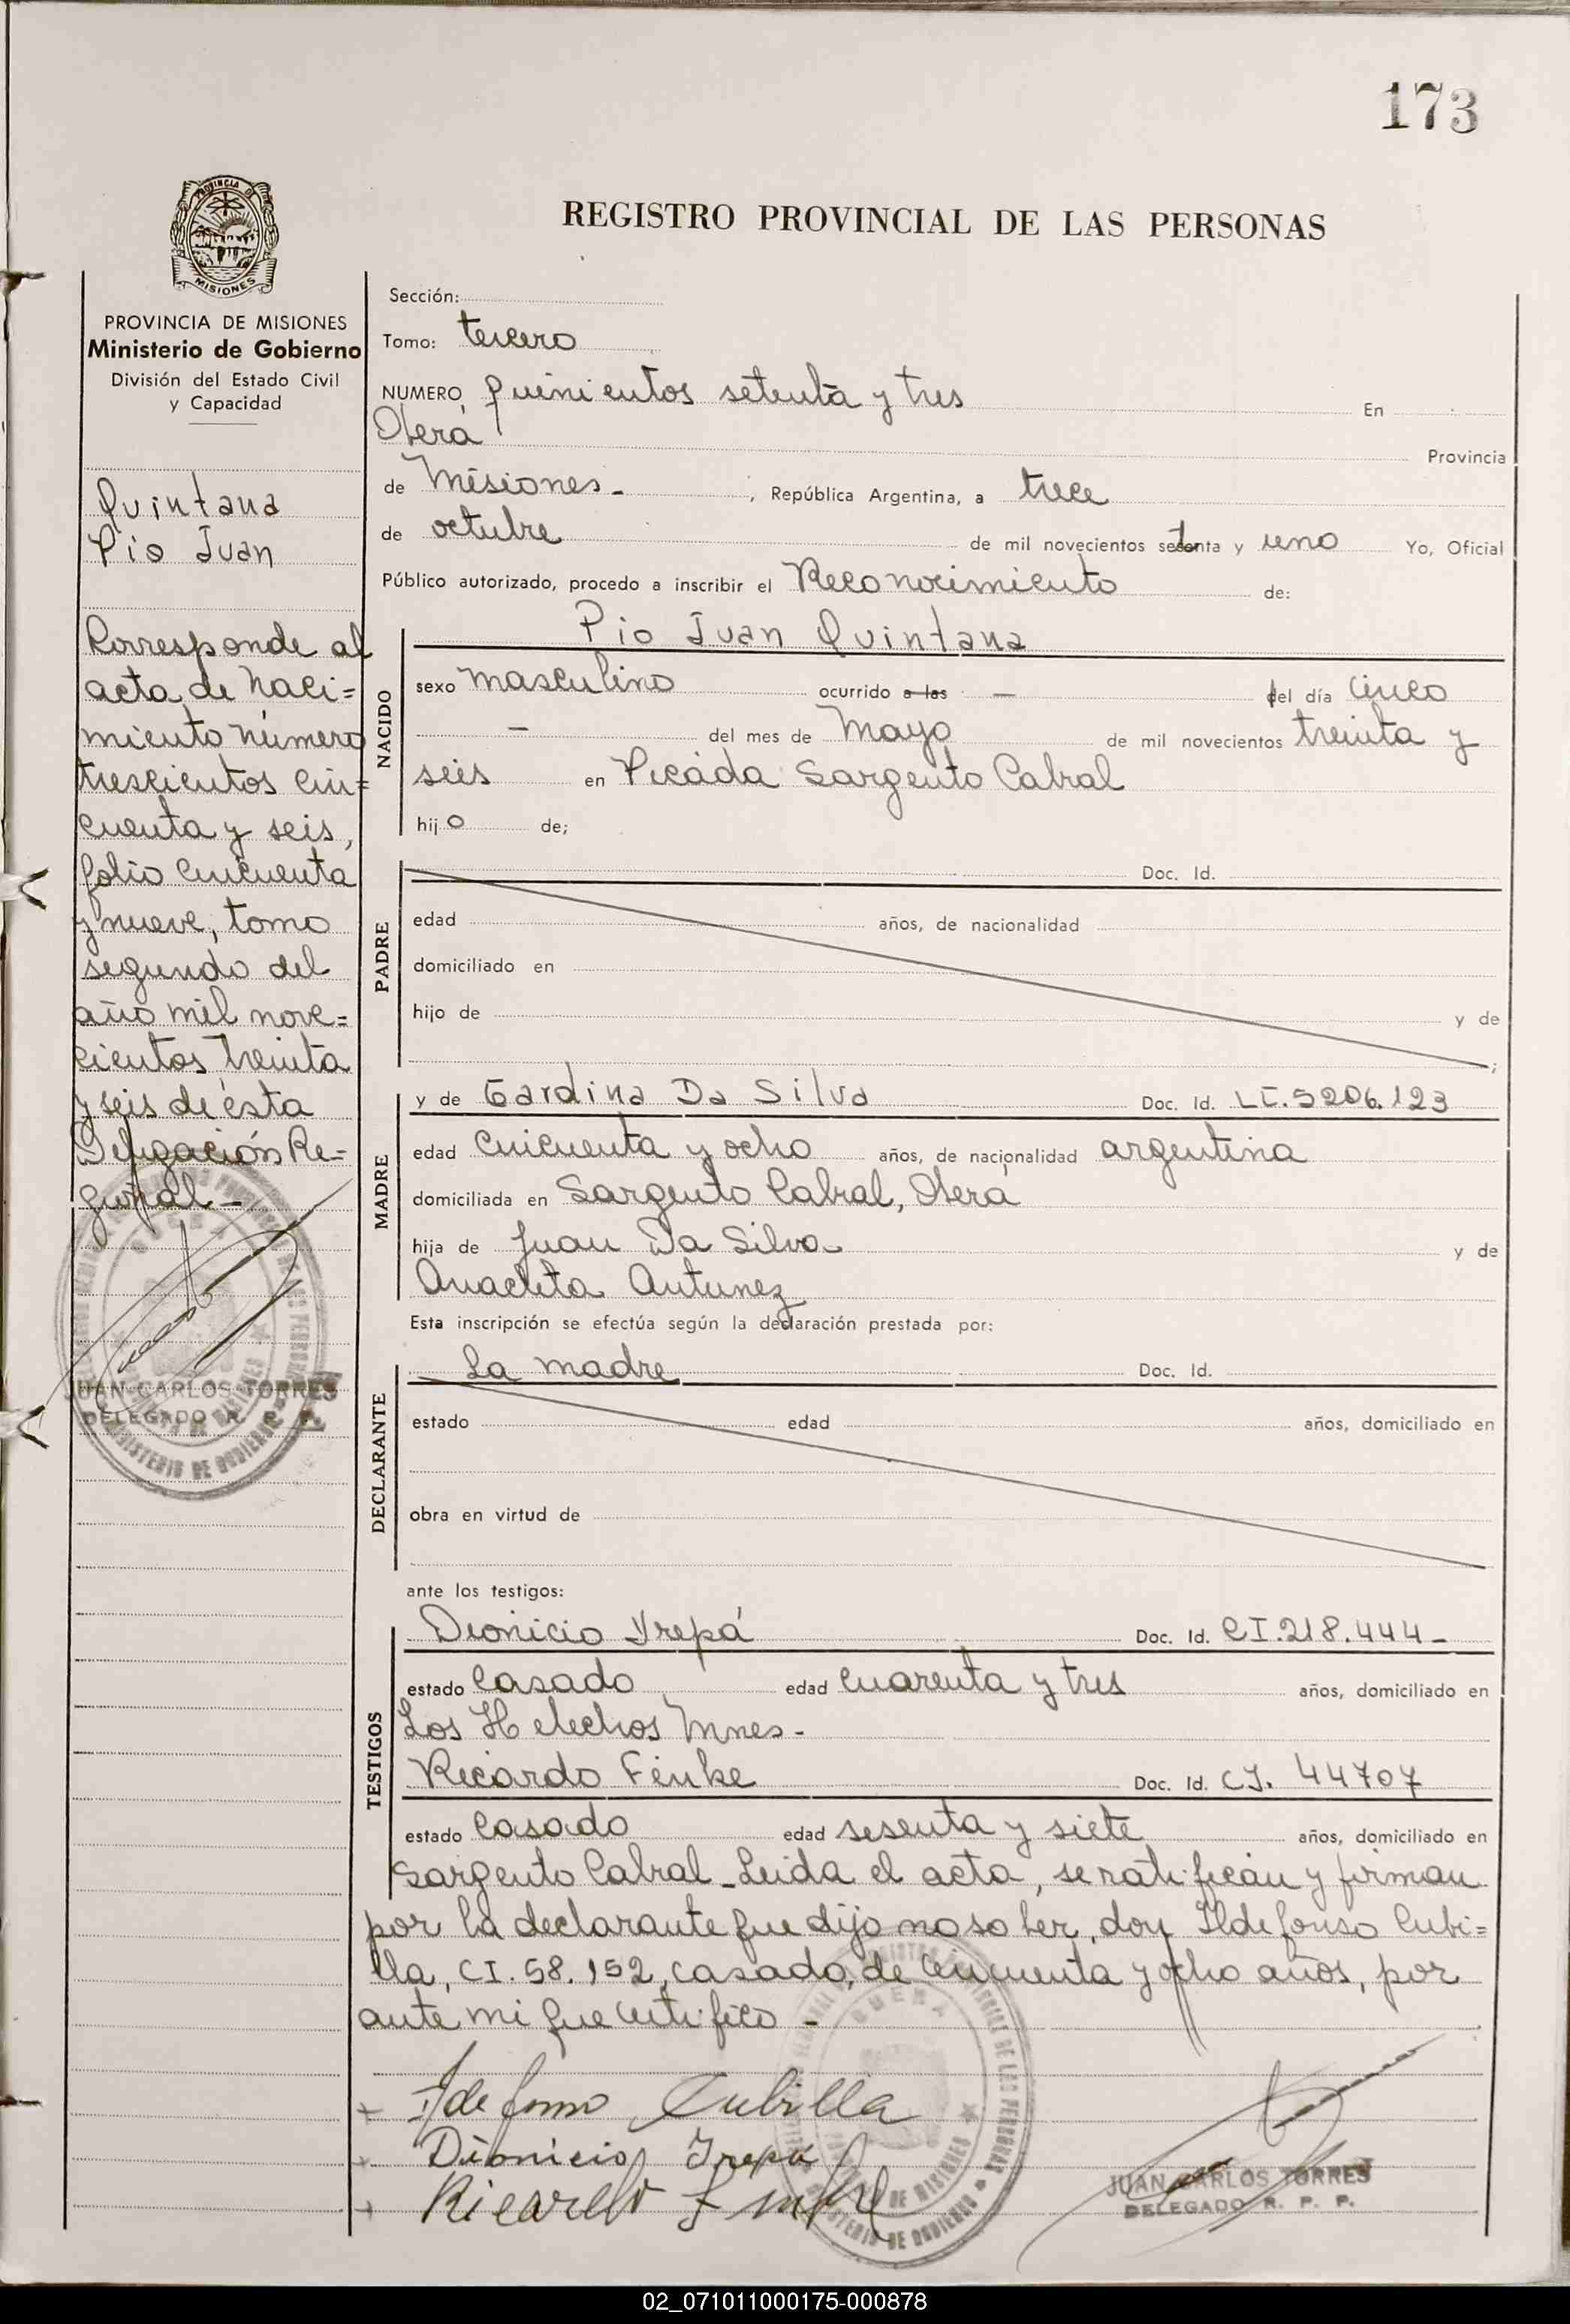 173
PROVINCIA DE MISIONES
REGISTRO PROVINCIAL DE LAS PERSONAS
PROVINCIA DE MISIONES
Ministerio de Gobierno
División del Estado Civil
y Capacidad
Quintana
Pio Juan
Corresponde al
acta de naci=
miento número
trescientos cin=
cuenta y seis,
folio cincuenta
y nueve, tomo
segundo del
año mil nove=
cientos treinta
y seis de ésta
Delegación Re=
gional -
JUAN CARLOS TORRES
DELEGADO R. P. P.
Sección:
Tomo: tercero
NUMERO quinientos setenta y tres En
Oberá Provincia
de Misiones - , República Argentina, a trece
de octubre de mil novecientos setenta y uno Yo, Oficial
Público autorizado, procedo a inscribir el Reconocimiento de:
NACIDO
Pio Juan Quintana
sexo masculino ocurrido a las — del día cinco
— del mes de Mayo de mil novecientos treinta y
seis en Picada Sargento Cabral
hijo de;
PADRE
Doc. Id.
edad años, de nacionalidad
domiciliado en
hijo de y de
;
MADRE
y de Gardina Da Silva Doc. Id. LC. 5206.123
edad cincuenta y ocho años, de nacionalidad argentina
domiciliada en Sargento Cabral, Oberá
hija de Juan Da Silva y de
Anacleta Antunez
Esta inscripción se efectúa según la declaración prestada por:
DECLARANTE
La madre Doc. Id.
estado edad años, domiciliado en
obra en virtud de
ante los testigos:
TESTIGOS
Dionicio Yrepá Doc. Id. CI. 218.444-
estado Casado edad cuarenta y tres años, domiciliado en
Los Helechos Mnes -
Ricardo Finke Doc. Id. CI. 44707
estado Casado edad sesenta y siete años, domiciliado en
Sargento Cabral - Leida el acta, se ratifican y firman
por la declarante que dijo no saber, don Ildefonso Cubi=
lla, CI. 58.152, casado, de cincuenta y ocho años, por
ante mi que certifico -
+ Ildefonso Cubilla
+ Dionicio Yrepá
+ Ricardo
JUAN CARLOS TORRES
DELEGADO R. P. P.
02_071011000175-000878